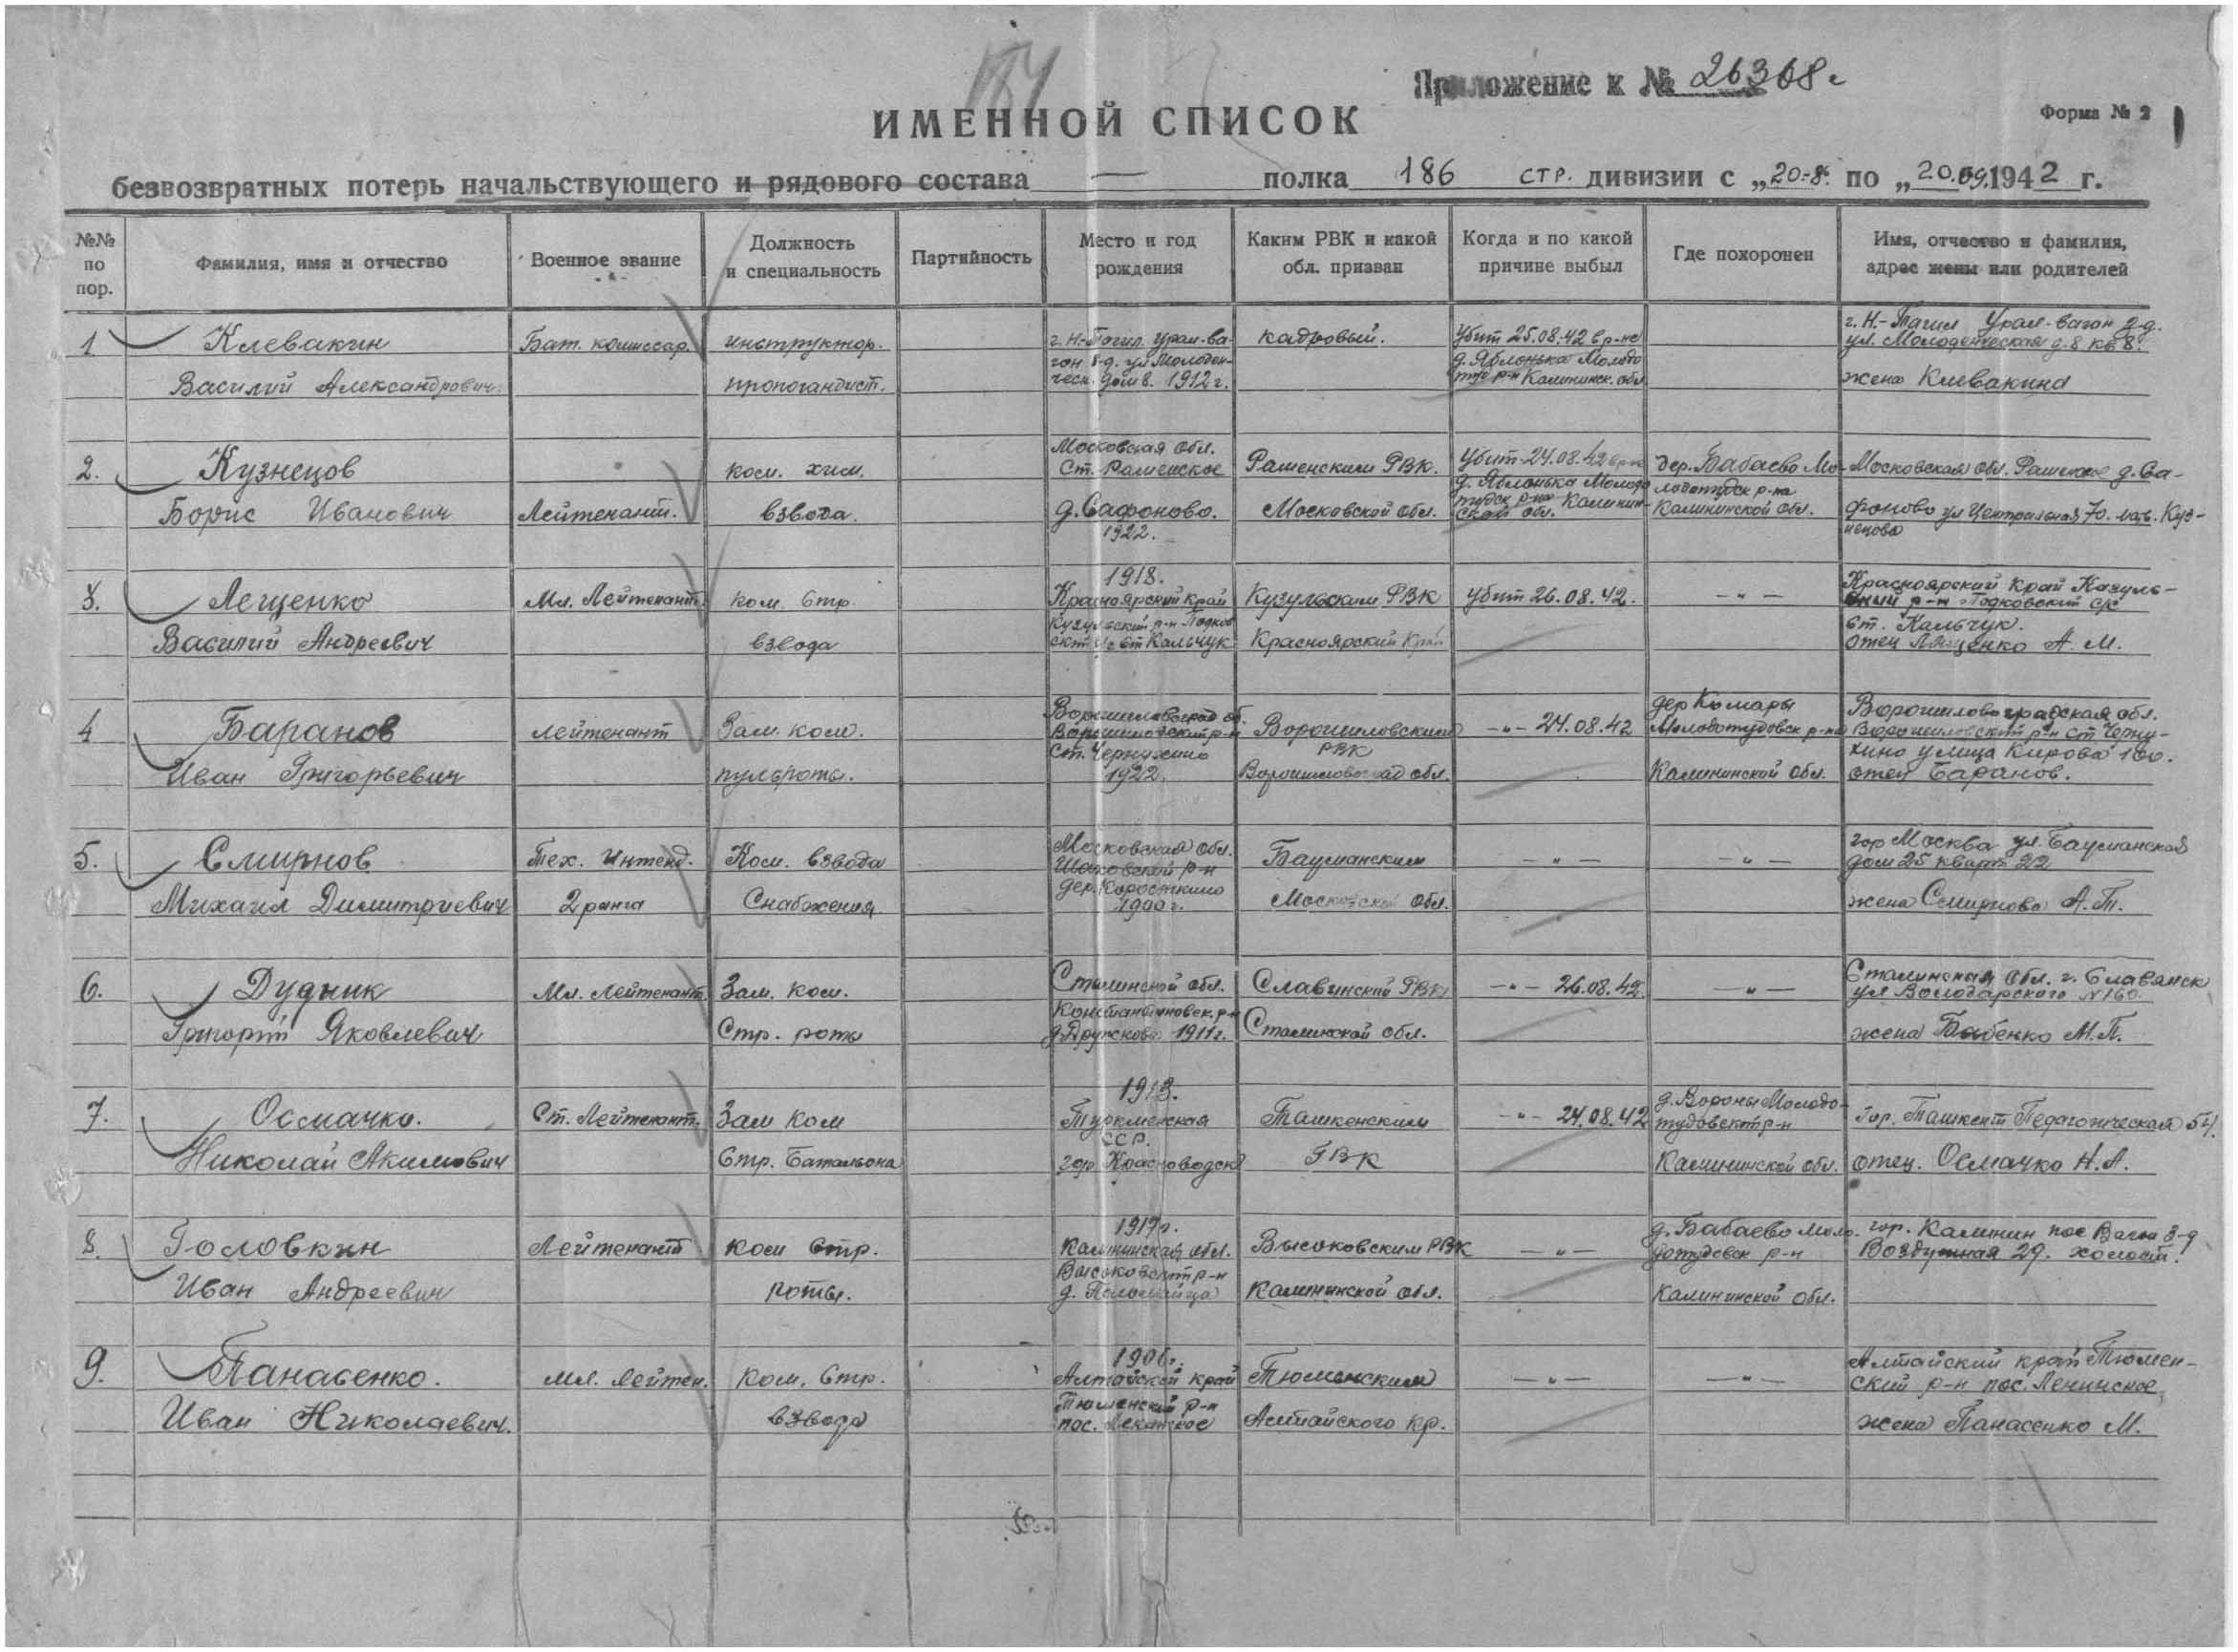 Приложение к № 26308с
ИМЕННОЙ СПИСОК
Форма № 2
безвозвратных потерь начальствующего и рядового состава — полка 186 стр. дивизии с „20-8. по „20.09.1942 г.
№№ по пор.
Фамилия, имя и отчество
Военное звание
Должность и специальность
Партийность
Место и год рождения
Каким РВК и какой обл. призван
Когда и по какой причине выбыл
Где похоронен
Имя, отчество и фамилия, адрес жены или родителей
1
Клевакин
Василий Александрович.
Бат. комиссар.
инструктор.
пропогандист.
г. Н.-Тагил Урал-ва-
гон з-д. ул Молодеж-
ческ. дом 8. 1912 г.
кадровый.
Убит 25.08.42 в р-не
д. Яблонька Молодо
туд р-н Калининск. обл
г. Н.-Тагил Урал-вагон з-д.
ул. Молодежческая д. 8 кв 8.
жена Клевакина
2.
Кузнецов
Борис Иванович
Лейтенант.
ком. хим.
взвода.
Московская обл.
Ст. Раменское
д. Сафоново.
1922.
Раменским РВК.
Московской обл.
Убит 24.08.42 в р-не
д. Яблонька Молодо
тудск р-на Калинин-
ской обл.
дер. Бабаево Мо-
лодотудск р-на
Калининской обл.
Московская обл. Раменское д. Са-
фоново ул Центральная 70. мать. Куз-
нецова
3.
Лещенко
Василий Андреевич
Мл. Лейтенант.
ком. Стр.
взвода
1918.
Красноярский край
Кузульский р-н Подков
ский с/с ст Кальчук
Кузульским РВК
Красноярский Край
убит 26.08.42.
— „ —
Красноярский край Козуль-
ский р-н Подковский с/с
ст. Кальчук.
отец Лященко А. М.
4
Баранов
Иван Григорьевич
лейтенант
Зам. ком.
пульроты.
Ворошиловоград об.
Ворошиловский р-н
ст. Чернухино
1922.
Ворошиловским
РВК
Ворошиловоград обл.
— „ — 24.08.42
дер Комары
Молодотудовск р-на
Калининской обл.
Ворошиловоградская обл.
Ворошиловский р-н ст Черну-
хино улица Кирова 100.
отец Баранов.
5.
Смирнов
Михаил Димитриевич
Тех. Интенд.
2 ранга
Ком. взвода
Снабжения.
Московская обл.
Шаховской р-н
дер. Коросткино
1900 г.
Бауманским
Московской обл.
— „ —
— „ —
гор Москва ул. Бауманская
дом 25 кварт 22
жена Смирнова А. Т.
6.
Дудник
Григорий Яковлевич
Мл. лейтенант.
Зам. ком.
Стр. роты
Сталинской обл.
Константиновск. р-н
д Дружково 1911 г.
Славянский РВК
Сталинской обл.
— „ — 26.08.42.
— „ —
Сталинская обл. г. Славянск
ул Володарского N 160.
жена Бабенко М. П.
7.
Осмачко.
Николай Акимович
Ст. Лейтенант.
Зам Ком
Стр. Батальона
1913.
Туркменская
ССР.
гор Красноводск
Ташкенским
ГВК
— „ — 24.08.42
д. Вороны Молодо-
тудовский р-н
Калининской обл.
Гор. Ташкент Педагогическая 54.
отец. Осмачко Н. А.
8.
Головкин
Иван Андреевич
Лейтенант
ком Стр.
роты.
1917 г.
Калининская обл.
Высоковский р-н
Высоковским РВК
Калининской обл.
— „ —
д. Бабаево Моло-
дотудовск р-н
Калининской обл.
гор. Калинин пос Вагон з-д
Воздушная 29. холост.
9.
Панасенко.
Иван Николаевич.
Мл. лейтен.
Ком. Стр.
взвода
1906 г.
Алтайский край
Тюменский р-н
пос. Ленинское
Тюменским
Алтайского кр.
— „ —
— „ —
Алтайский край Тюмен-
ский р-н пос. Ленинское
жена Панасенко М.